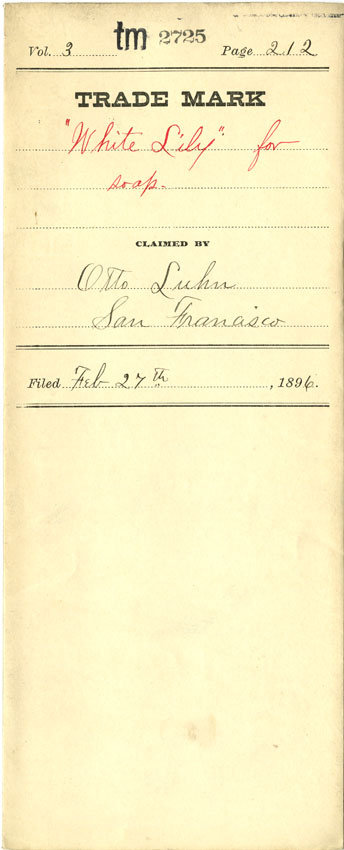 Vol. 3 tm 2725 Page 212
TRADE MARK
"White Lily" for
soap.
CLAIMED BY
Otto Luhn
San Francisco
Filed Feb 27th, 1896.